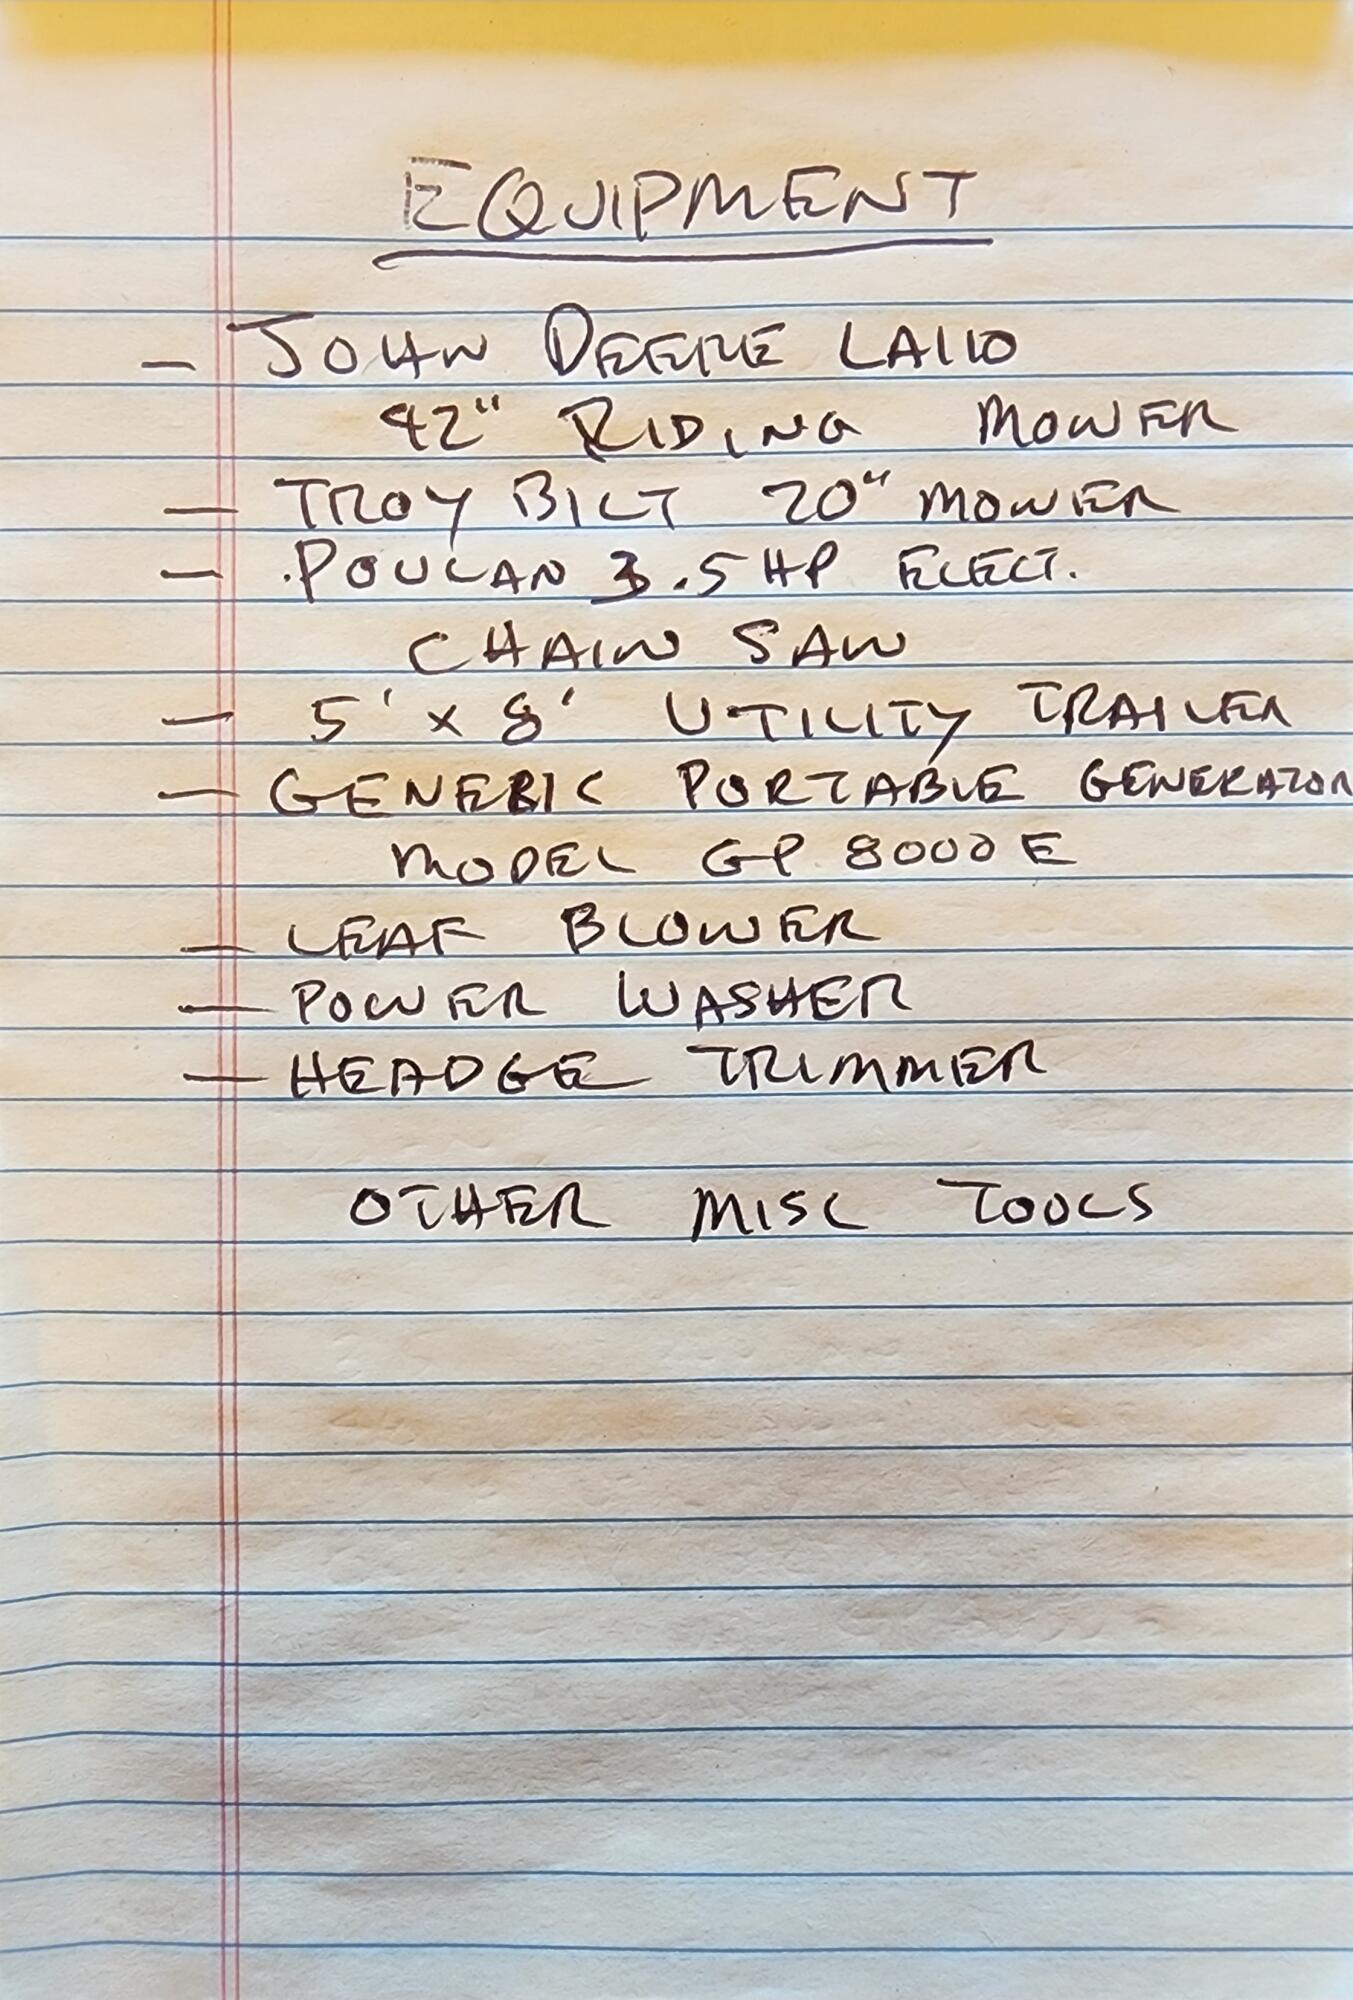 EQUIPMENT
- JOHN DEERE LA110
42" RIDING MOWER
- TROY BILT 20" MOWER
- POULAN 3.5 HP ELECT.
CHAIN SAW
- 5' x 8' UTILITY TRAILER
- GENERIC PORTABLE GENERATOR
MODEL GP 8000E
- LEAF BLOWER
- POWER WASHER
- HEADGE TRIMMER
OTHER MISC TOOLS